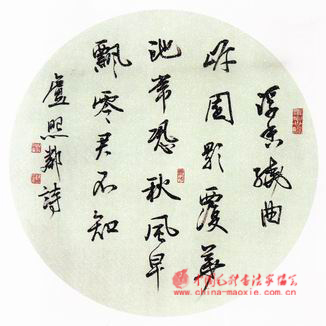 浮香繞曲
岸圓影覆華
池常恐秋風早
飄零君不知
盧照鄰詩
www.china-maoxie.com